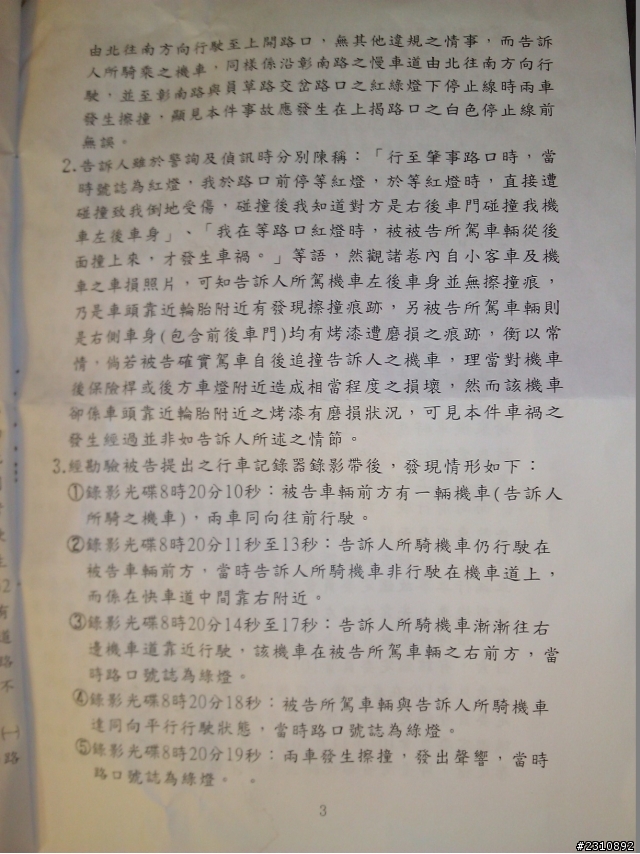 由北往南方向行駛至上開路口，無其他違規之情事，而告訴
人所騎乘之機車，同樣係沿彰南路之慢車道由北往南方向行
駛，並至彰南路與員草路交岔路口之紅綠燈下停止線時兩車
發生擦撞，顯見本件事故應發生在上揭路口之白色停止線前
無誤。
2.告訴人雖於警詢及偵訊時分別陳稱：「行至肇事路口時，當
時號誌為紅燈，我於路口前停等紅燈，於等紅燈時，直接遭
碰撞致我倒地受傷，碰撞後我知道對方是右後車門碰撞我機
車左後車身」、「我在等路口紅燈時，被被告所駕車輛從後
面撞上來，才發生車禍。」等語，然觀諸卷內自小客車及機
車之車損照片，可知告訴人所駕機車左後車身並無擦撞痕，
乃是車頭靠近輪胎附近有發現擦撞痕跡，另被告所駕車輛則
是右側車身(包含前後車門)均有烤漆遭磨損之痕跡，衡以常
情，倘若被告確實駕車自後追撞告訴人之機車，理當對機車
後保險桿或後方車燈附近造成相當程度之損壞，然而該機車
卻係車頭靠近輪胎附近之烤漆有磨損狀況，可見本件車禍之
發生經過並非如告訴人所述之情節。
3.經勘驗被告提出之行車記錄器錄影帶後，發現情形如下：
①錄影光碟8時20分10秒：被告車輛前方有一輛機車(告訴人
所騎之機車)，兩車同向往前行駛。
②錄影光碟8時20分11秒至13秒：告訴人所騎機車仍行駛在
被告車輛前方，當時告訴人所騎機車非行駛在機車道上，
而係在快車道中間靠右附近。
③錄影光碟8時20分14秒至17秒：告訴人所騎機車漸漸往右
邊機車道靠近行駛，該機車在被告所駕車輛之右前方，當
時路口號誌為綠燈。
④錄影光碟8時20分18秒：被告所駕車輛與告訴人所騎機車
達同向平行行駛狀態，當時路口號誌為綠燈。
⑤錄影光碟8時20分19秒：兩車發生擦撞，發出聲響，當時
路口號誌為綠燈。
3
#2310892